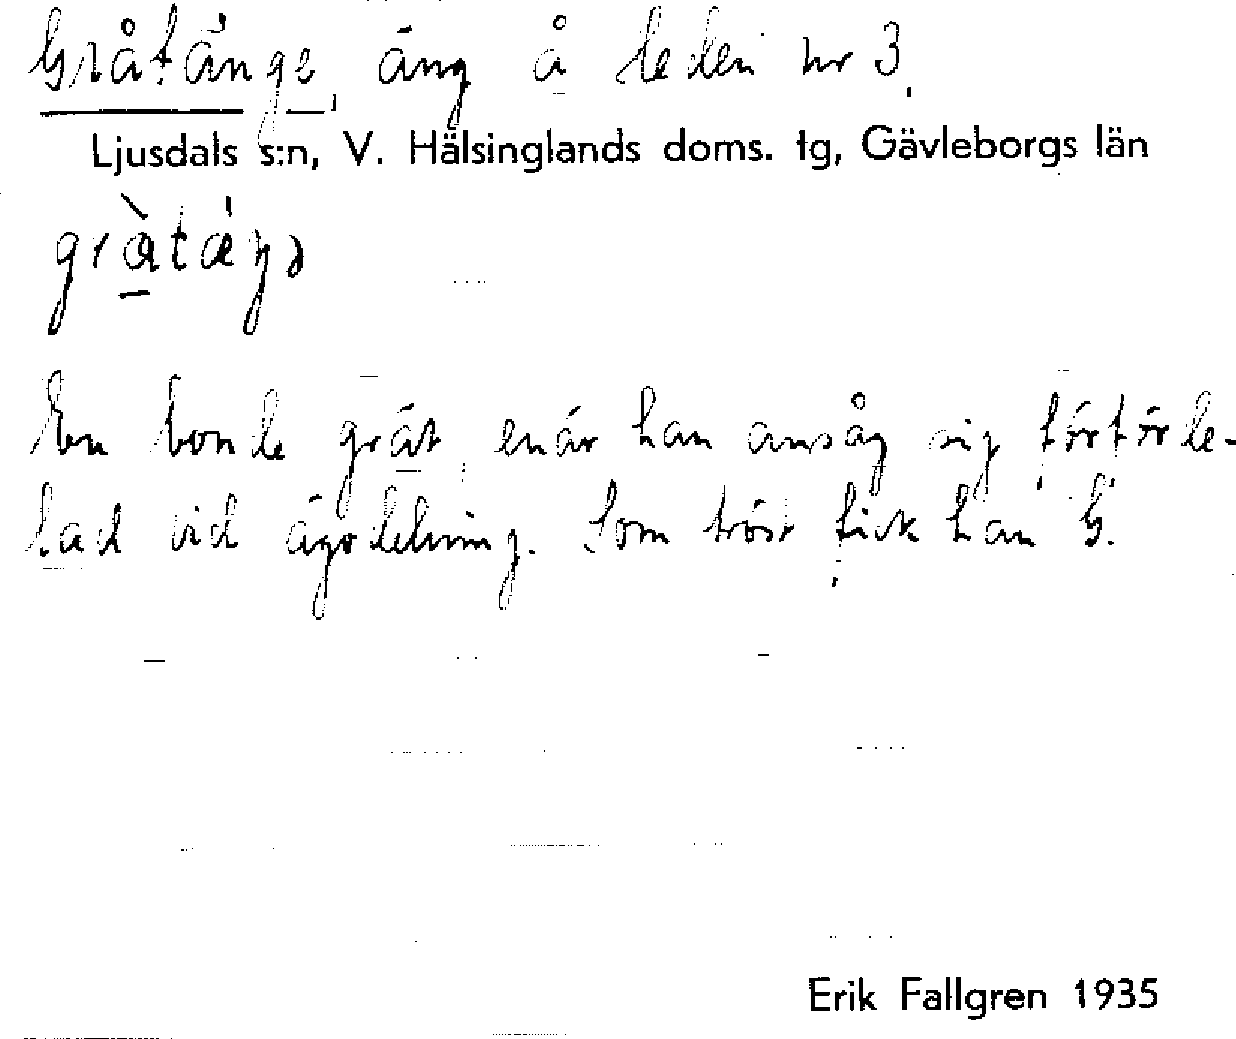 Gråtänge, äng å Leden nr 3.
Ljusdals s:n, V. Hälsinglands doms. tg, Gävleborgs län
grå̀tæ̀ŋə
En bonde grät, enär han ansåg sig förförde-
lad vid ägodelning. Som tröst fick han G.
Erik Fallgren 1935